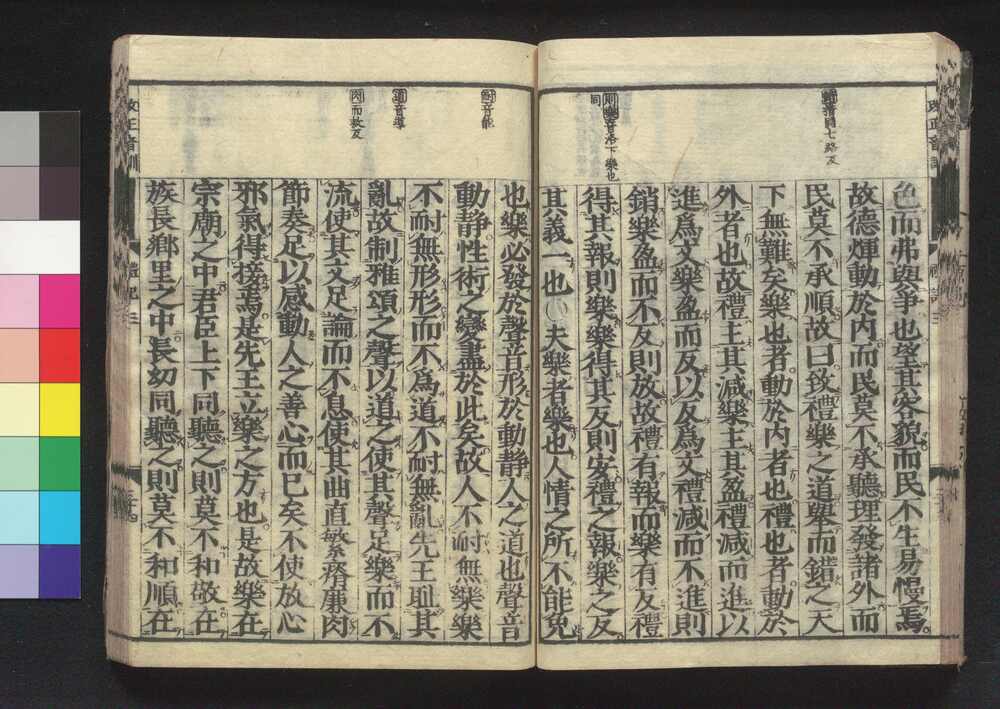 色而弗與爭也望其容貌而民不生易慢焉
故德煇動於内而民莫不承聽理發諸外而
民莫不承順故曰致禮樂之道舉而錯之天
下無難矣樂也者動於内者也禮也者動於
外者也故禮主其減樂主其盈禮減而進以
進爲文樂盈而反以反爲文禮減而不進則
銷樂盈而不反則放故禮有報而樂有反禮
得其報則樂樂得其反則安禮之報樂之反
其義一也〇夫樂者樂也人情之所不能免
也樂必發於聲音形於動靜人之道也聲音
動靜性術之變盡於此矣故人不耐無樂樂
不耐無形形而不爲道不耐無亂先王耻其
亂故制雅頌之聲以道之使其聲足樂而不
流使其文足論而不息使其曲直繁瘠廉肉
節奏足以感動人之善心而已矣不使放心
邪氣得接焉是先王立樂之方也是故樂在
宗廟之中君臣上下同聽之則莫不和敬在
族長鄉里之中長幼同聽之則莫不和順在
錯音措七路反
則樂音洛下樂也
同
耐音能
道音導
肉而救反
改正音訓
禮記三